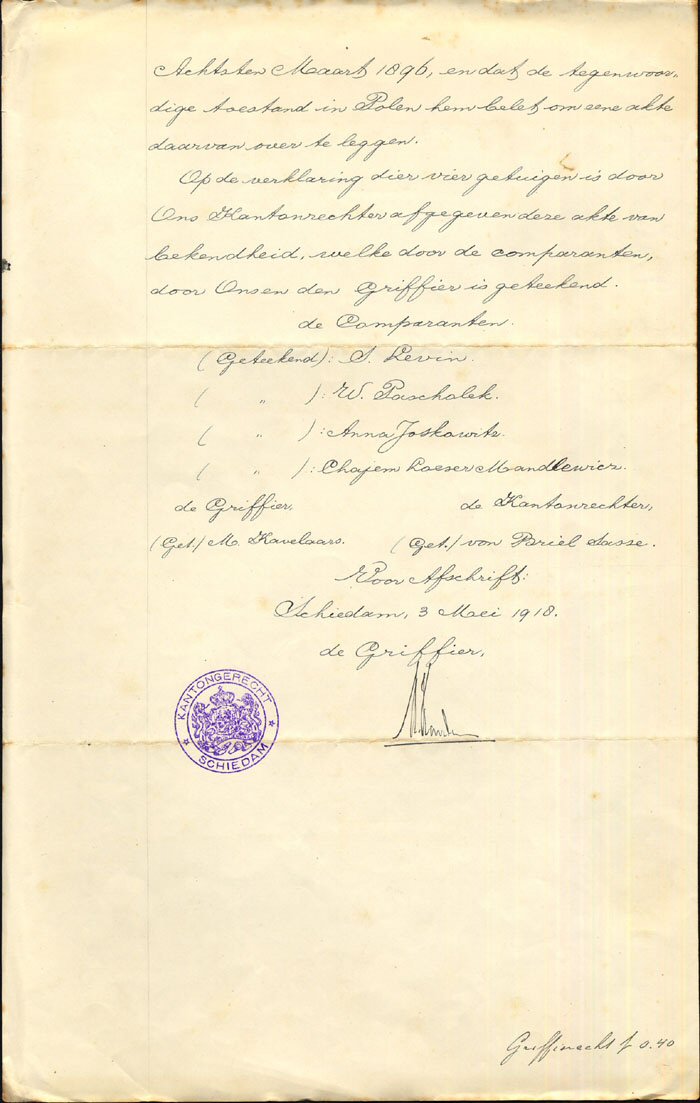 Achtsten Maart 1896, en dat de tegenwoor-
dige toestand in Polen hem belet, om eene akte
daarvan over te leggen.
Op de verklaring dier vier getuigen is door
Ons Kantonrechter afgegeven deze akte van
bekendheid, welke door de comparanten,
door Ons en den Griffier is geteekend.
de Comparanten.
(Geteekend): S. Levin.
( " ): W. Paschalek.
( " ): Anna Joskowitz.
( " ): Chajem Loeser Mandlewicz.
de Griffier, de Kantonrechter,
(Get.) M. Havelaars. (Get.) von Briel Sasse.
Voor Afschrift:
Schiedam, 3 Mei 1918.
de Griffier,
KANTONGERECHT
SCHIEDAM
Griffierecht f 0.40